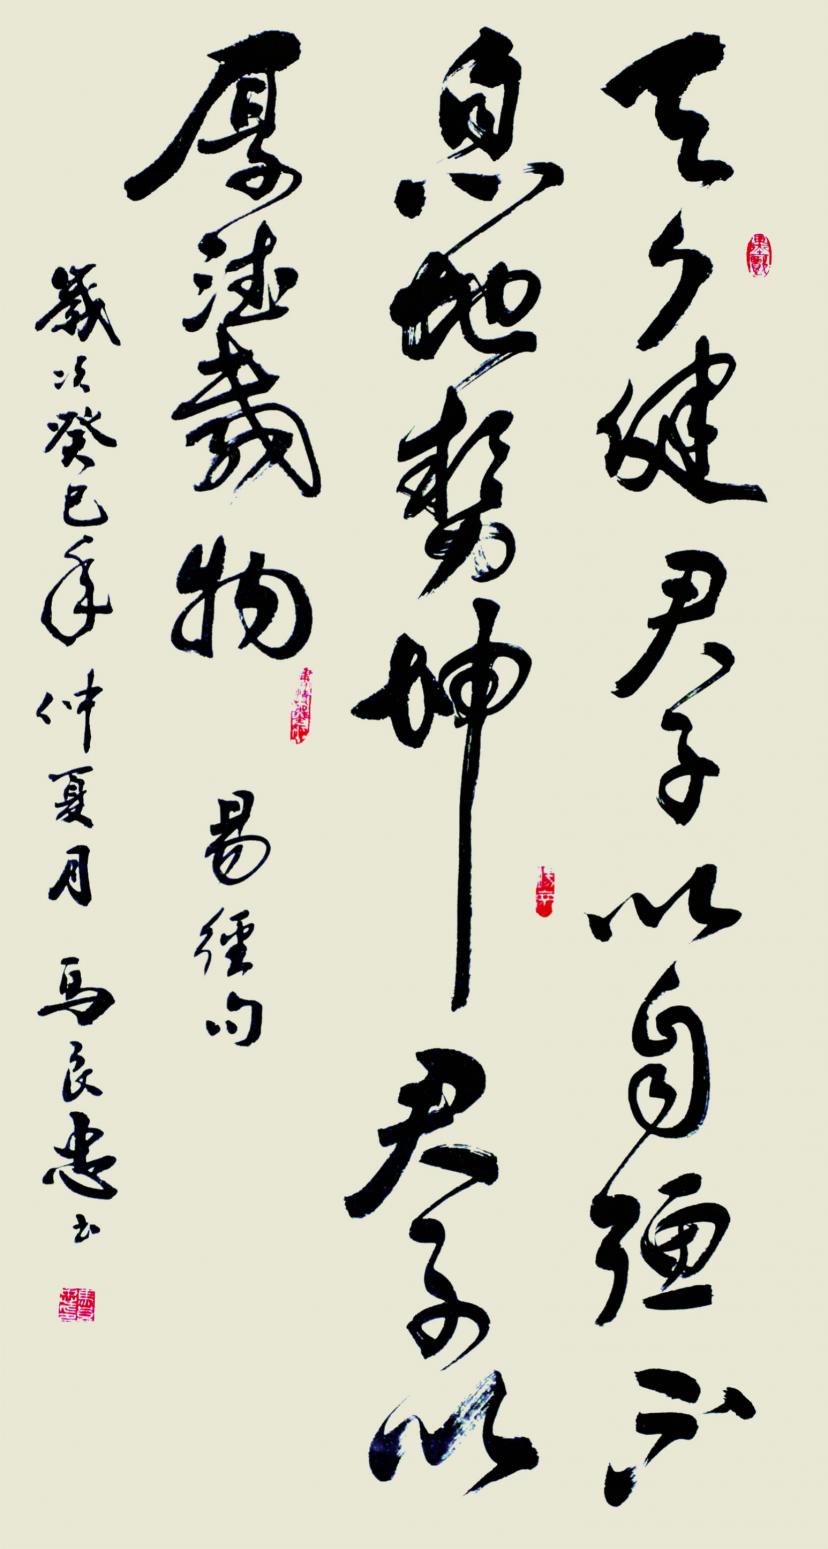 天行健君子以自强不
息地势坤君子以
厚德载物
易經句
歲次癸巳年仲夏月 馬良忠书